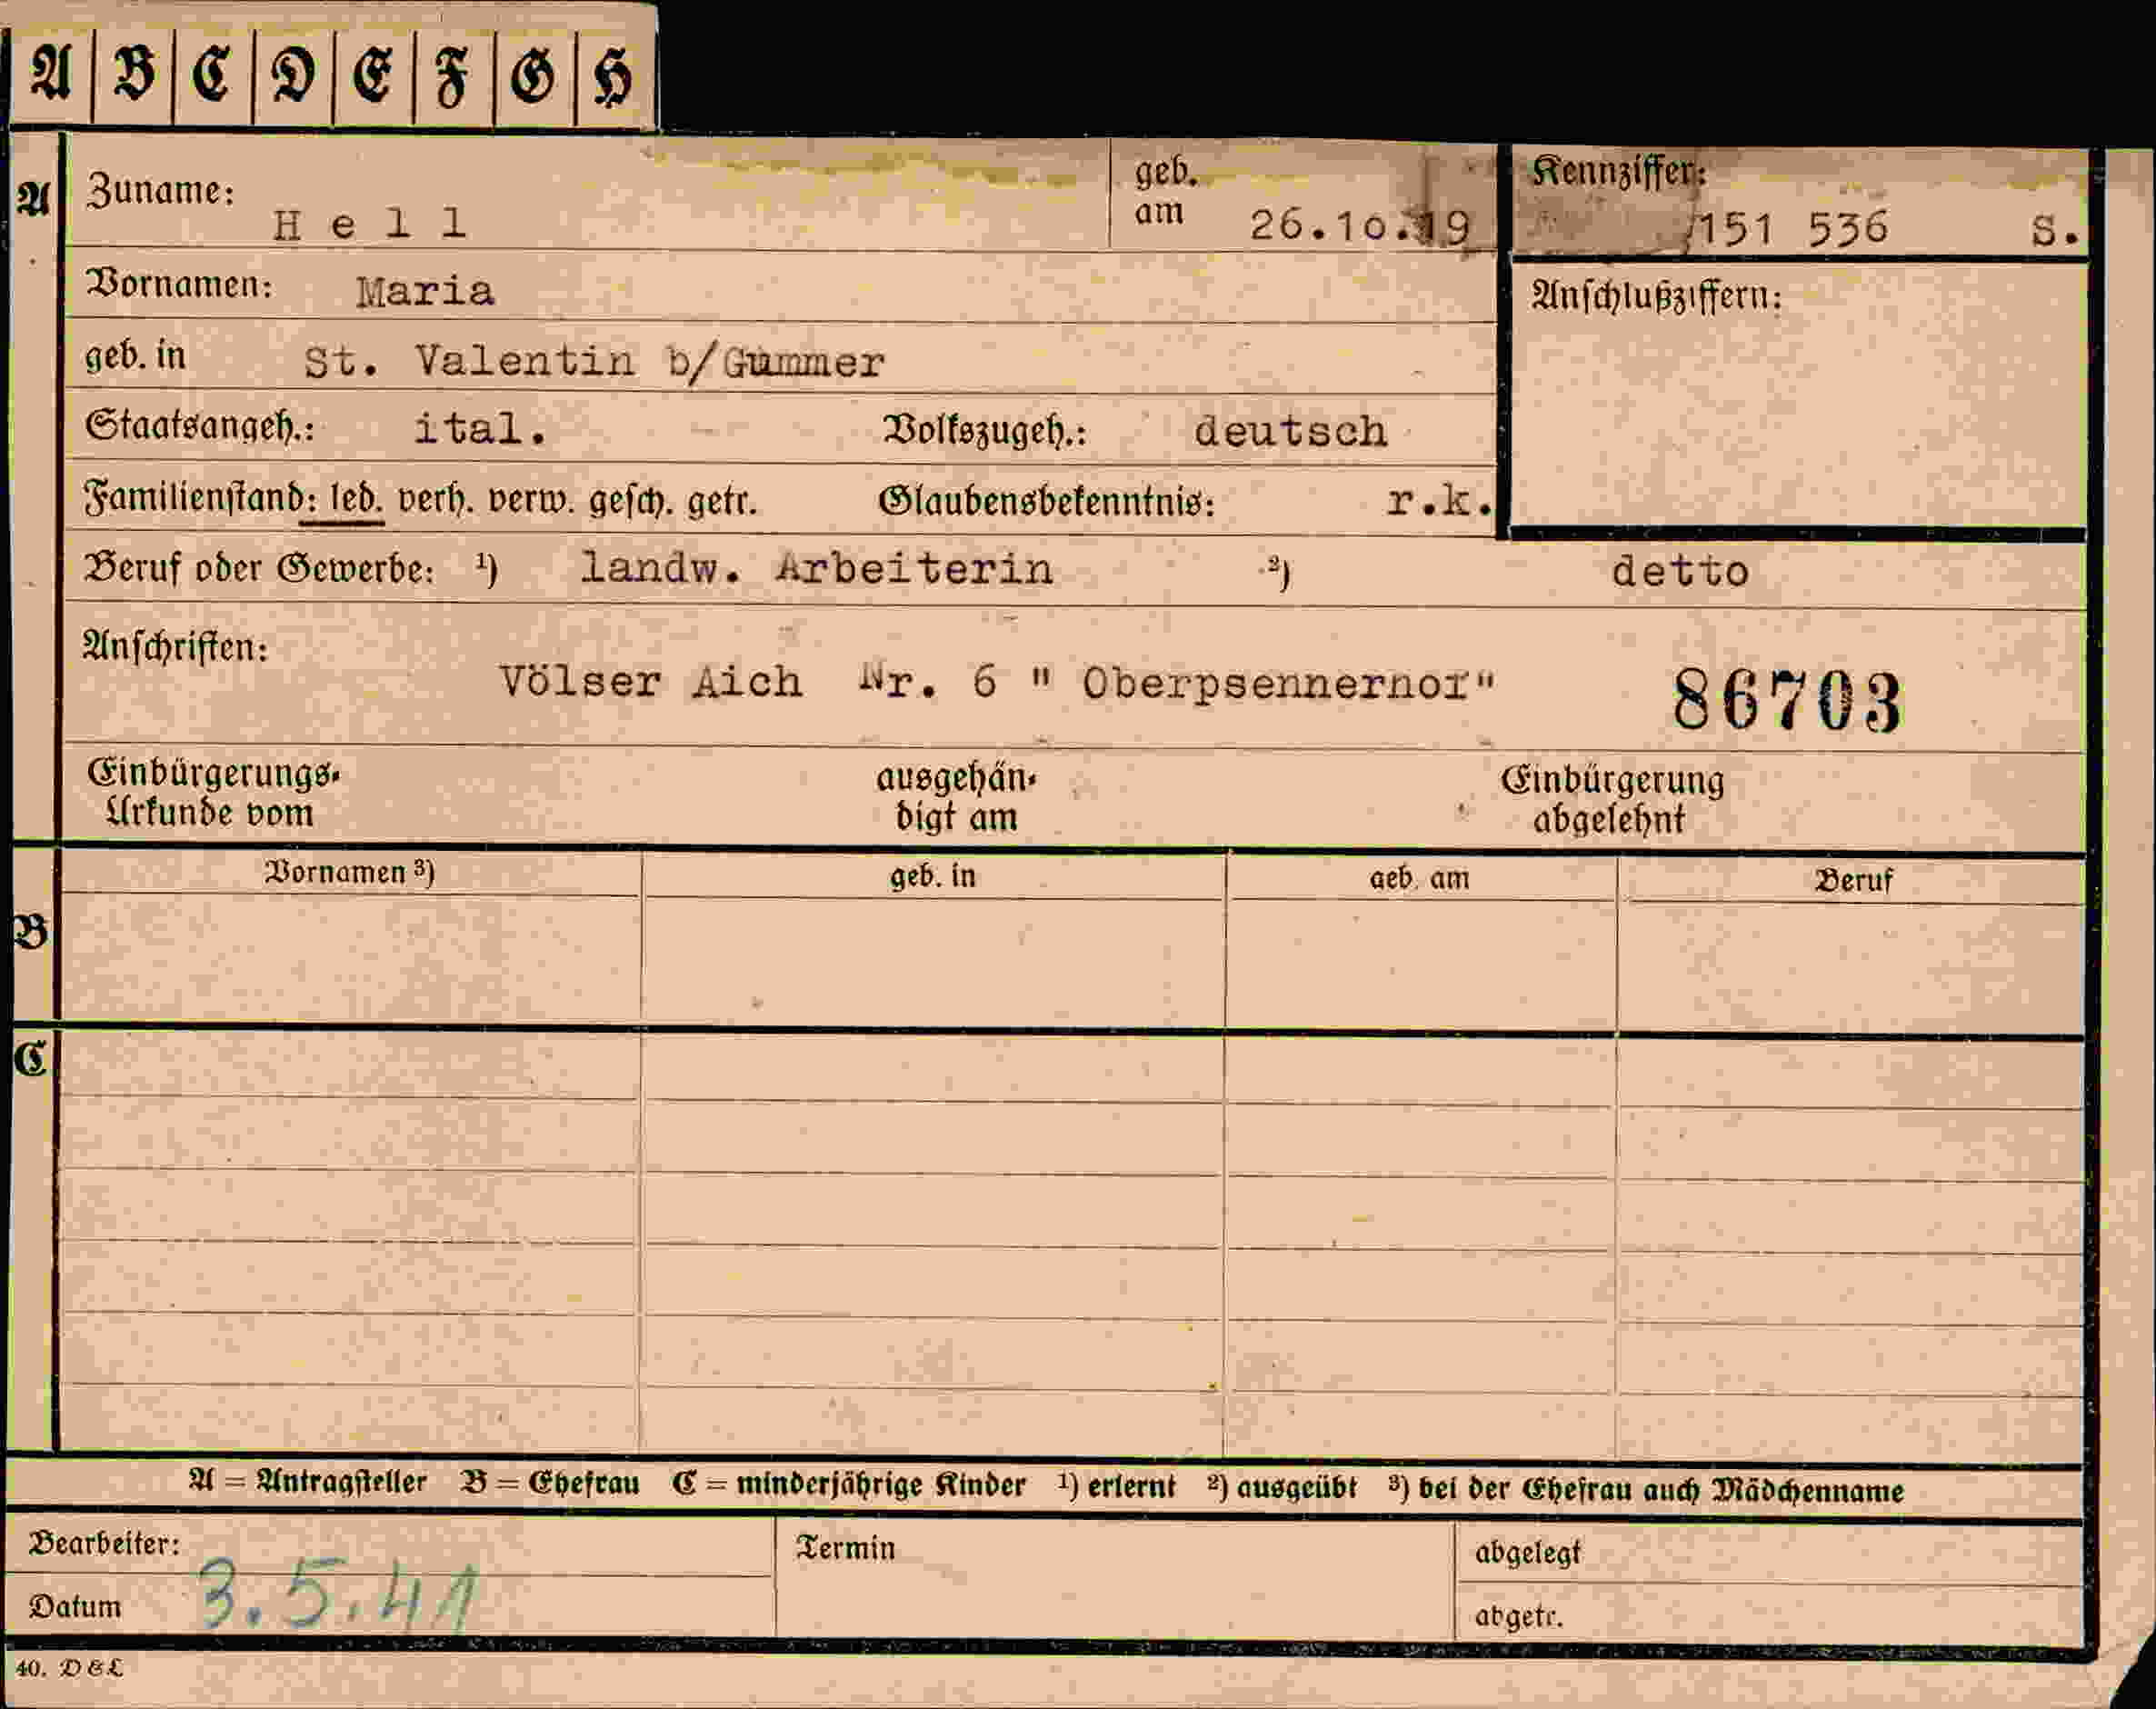 A B C D E F G H
A Zuname: Hell geb. am 26.10.19 Kennziffer: 151 536 S.
Vornamen: Maria Anschlußziffern:
geb. in St. Valentin b/Gummer
Staatsangeh.: ital. Volkszugeh.: deutsch
Familienstand: led. verh. verw. gesch. getr. Glaubensbekenntnis: r.k.
Beruf oder Gewerbe: ¹) landw. Arbeiterin ²) detto
Anschriften:
Völser Aich Nr. 6 " Oberpsennerhof" 86703
Einbürgerungs- ausgehän- Einbürgerung
Urkunde vom digt am abgelehnt
Vornamen ³) geb. in geb. am Beruf
B
C
A = Antragsteller B = Ehefrau C = minderjährige Kinder ¹) erlernt ²) ausgeübt ³) bei der Ehefrau auch Mädchenname
Bearbeiter: Termin abgelegt
Datum 3.5.41 abgetr.
40. D & L